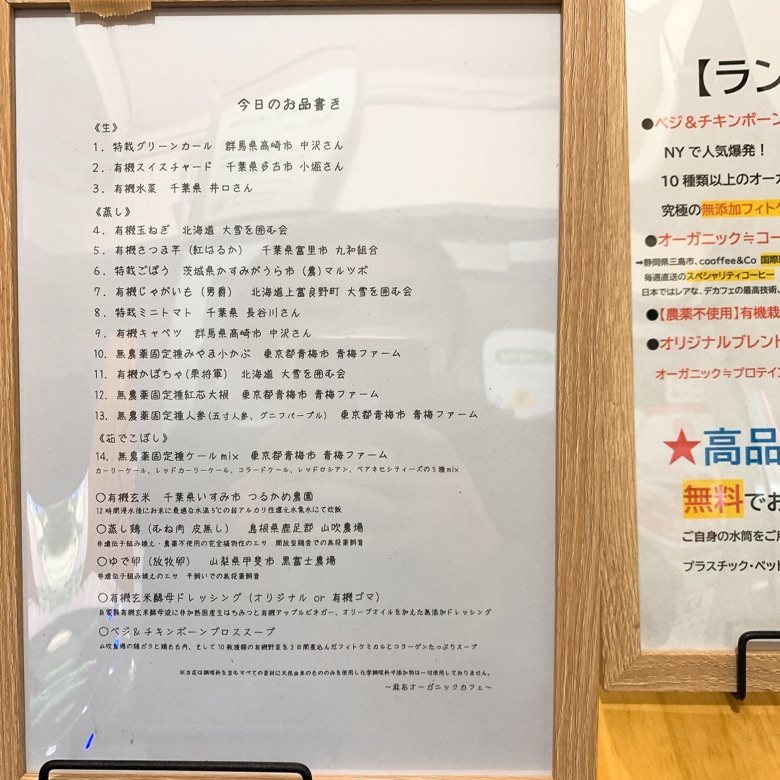 今日のお品書き
《生》
1. 特栽グリーンカール 群馬県高崎市 中沢さん
2. 有機スイスチャード 千葉県多古市 小堀さん
3. 有機水菜 千葉県 井口さん
《蒸し》
4. 有機玉ねぎ 北海道 大雪を囲む会
5. 有機さつま芋 (紅はるか) 千葉県富里市 丸和組合
6. 特栽ごぼう 茨城県かすみがうら市 (農)マルツボ
7. 有機じゃがいも (男爵) 北海道上富良野町 大雪を囲む会
8. 特栽ミニトマト 千葉県 長谷川さん
9. 有機キャベツ 群馬県高崎市 中沢さん
10. 無農薬固定種みやま小かぶ 東京都青梅市 青梅ファーム
11. 有機かぼちゃ(栗将軍) 北海道 大雪を囲む会
12. 無農薬固定種紅芯大根 東京都青梅市 青梅ファーム
13. 無農薬固定種人参(五寸人参、グニフパープル) 東京都青梅市 青梅ファーム
《茹でこぼし》
14. 無農薬固定種ケールmix 東京都青梅市 青梅ファーム
カーリーケール、レッドカーリーケール、コラードケール、レッドロシアン、ベアネセシティーズの5種mix
○有機玄米 千葉県いすみ市 つるかめ農園
12時間浸水後にお米に最適な水温5℃の弱アルカリ性還元水素水にて炊飯
○蒸し鶏 (むね肉 皮無し) 島根県鹿足郡 山吹農場
非遺伝子組み換え・農薬不使用の完全植物性のエサ 開放型鶏舎での無投薬飼育
○ゆで卵 (放牧卵) 山梨県甲斐市 黒富士農場
非遺伝子組み換えのエサ 平飼いでの無投薬飼育
○有機玄米酵母ドレッシング (オリジナル or 有機ゴマ)
自家製有機玄米酵母液に非加熱国産生はちみつと有機アップルビネガー、オリーブオイルを加えた無添加ドレッシング
○ベジ&チキンボーンブロススープ
山吹農場の鶏ガラと鶏もも肉、そして10数種類の有機野菜を3日間煮込んだフィトケミカルとコラーゲンたっぷりスープ
※当店は調味料を含むすべての食材に天然由来のもののみを使用し化学調味料や添加物は一切使用しておりません。
～麻布オーガニックカフェ～
【ラン
●ベジ&チキンボーン
NYで人気爆発!
10種類以上のオーガ
究極の無添加フィトケ
●オーガニック≒コー
➡静岡県三島市、cooffee&Co 国際
毎週直送のスペシャリティコーヒー
日本ではレアな、デカフェの最高技術、
●【農薬不使用】有機栽
●オリジナルブレンド
オーガニック≒プロテイン
★高品
無料でお
ご自身の水筒をご用
プラスチック・ペット